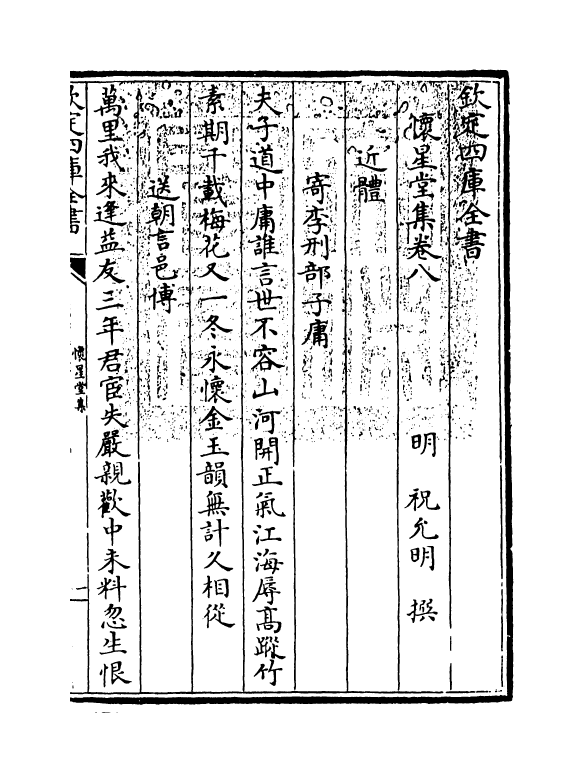 欽定四庫全書
懷星堂集卷八
明 祝允明 撰
近體
寄李刑部子庸
夫子道中庸誰言世不容山河開正氣江海辱高蹤竹
素期千載梅花又一冬永懷金玉韻無計久相從
送朝言邑博
萬里我來逢益友三年君宦失嚴親歡中未料忽生恨
欽定四庫全書
懷星堂集
一